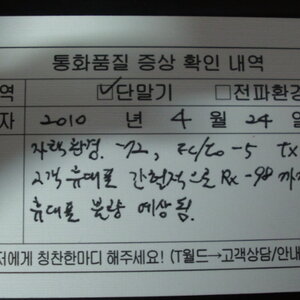 통화품질 증상 확인 내역
역 ☑단말기 □전파환경
자 2010 년 4 월 24 일
자택환경. -72, Ec/Io -5 Tx
고객 휴대폰 간헐적으로 Rx -98 까지
휴대폰 불량 예상됨.
저에게 칭찬한마디 해주세요! (T월드→고객상담/안내